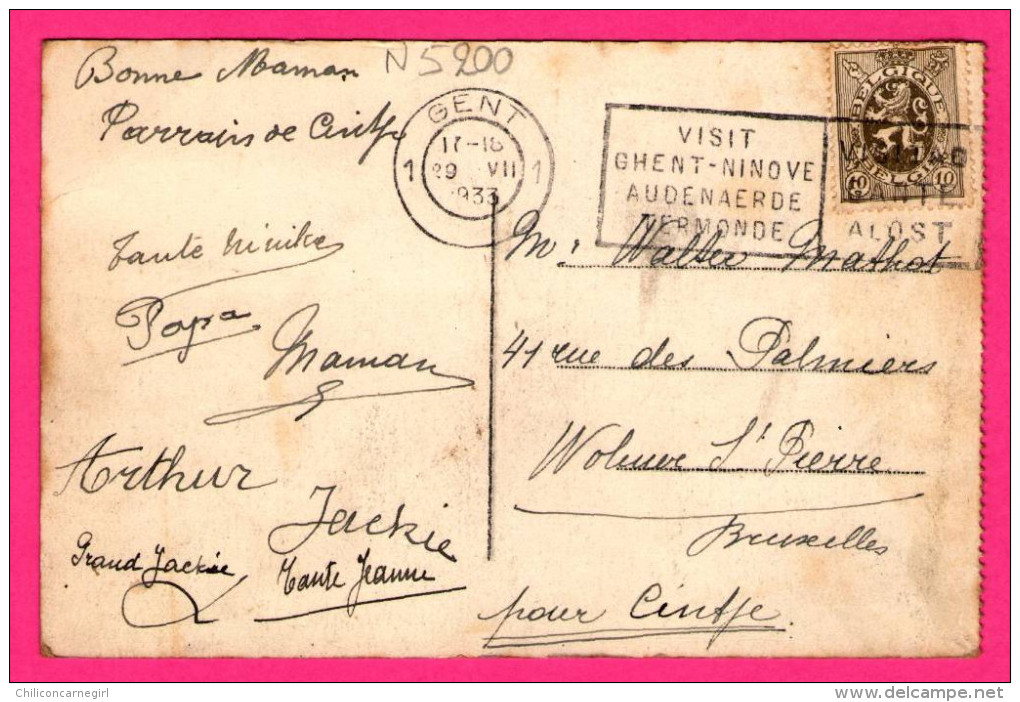 Bonne Maman
N 5200
Parrain de Cintje
GENT
1 17-18 1
29 VII
1933
VISIT
GHENT-NINOVE
AUDENAERDE
TERMONDE
ALOST
BELGIQUE
10 BELGIE 10
Tante Ninike
Papa
Maman
Arthur
Jackie
Grand Jackie
Tante Jeanne
Mr Walter Mathot
41 rue des Palmiers
Woluwe St Pierre
Bruxelles
pour Cintje.
Chiliconcarnegirl
www.delcampe.net